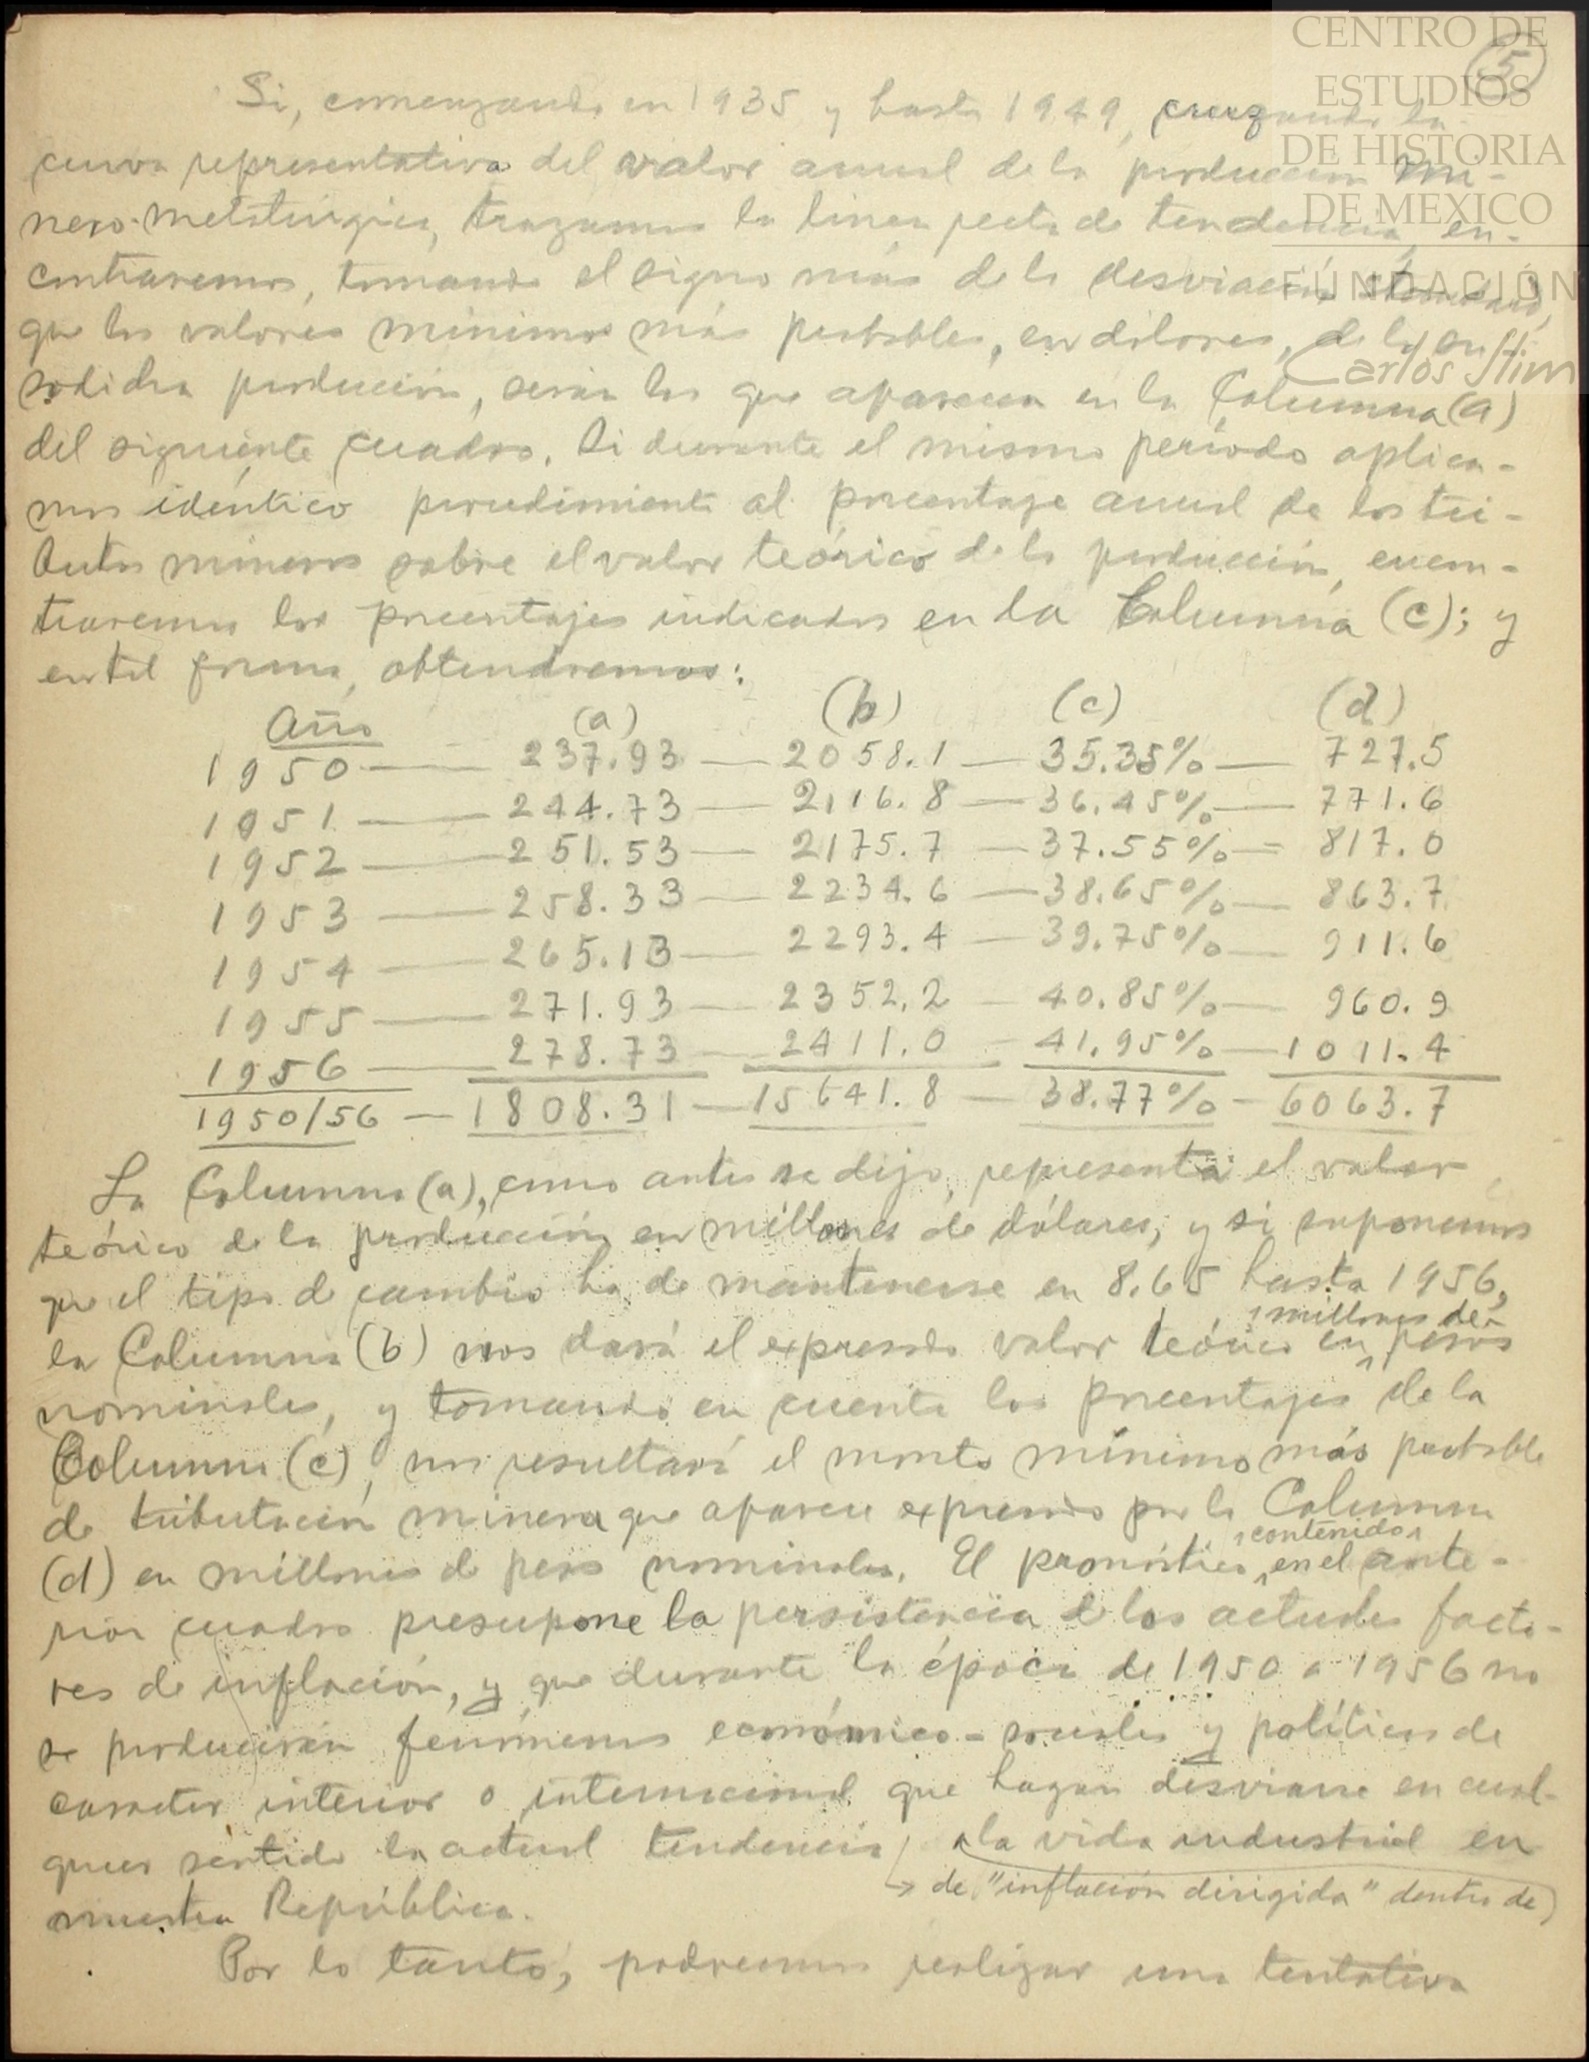 CENTRO DE
ESTUDIOS
DE HISTORIA
DE MEXICO
FUNDACIÓN
Carlos Slim
5
Si, comenzando en 1935 y hasta 1949, cruzando la
curva representativa del valor anual de la producción mi-
nero-metalúrgica, trazamos la linea recta de tendencia, en-
contraremos, tomando el signo más de la desviación standard,
que los valores mínimos más probables, en dólares, de la su-
sodicha producción, serán los que aparecen en la Columna (a)
del siguiente cuadro. Si durante el mismo período aplica-
mos idéntico procedimiento al porcentaje anual de los tri-
butos mineros sobre el valor teórico de la producción, encon-
traremos los porcentajes indicados en la Columna (c); y
en tal forma, obtendremos:
Año (a) (b) (c) (d)
1950 — 237.93 — 2058.1 — 35.35% — 727.5
1951 — 244.73 — 2116.8 — 36.45% — 771.6
1952 — 251.53 — 2175.7 — 37.55% — 817.0
1953 — 258.33 — 2234.6 — 38.65% — 863.7
1954 — 265.13 — 2293.4 — 39.75% — 911.6
1955 — 271.93 — 2352.2 — 40.85% — 960.9
1956 — 278.73 — 2411.0 — 41.95% — 1011.4
1950/56 — 1808.31 — 15641.8 — 38.77% — 6063.7
La Columna (a), como antes se dijo, representa el valor
teórico de la producción en millones de dólares; y si suponemos
que el tipo de cambio ha de mantenerse en 8.65 hasta 1956,
millones de
la Columna (b) nos dará el expresado valor teórico en pesos
nominales, y tomando en cuenta los porcentajes de la
Columna (c), nos resultará el monto mínimo más probable
de tributación minera que aparece expresado por la Columna
contenido
(d) en millones de pesos nominales. El pronóstico en el ante-
rior cuadro presupone la persistencia de los actuales facto-
res de inflación, y que durante la época de 1950 a 1956 no
se producirán fenómenos económico-sociales y políticos de
caracter interior o internacional que hagan desviarse en cual-
quier sentido la actual tendencia a la vida industrial en
de "inflación dirigida" dentro de
nuestra República.
Por lo tanto, podremos realizar una tentativa